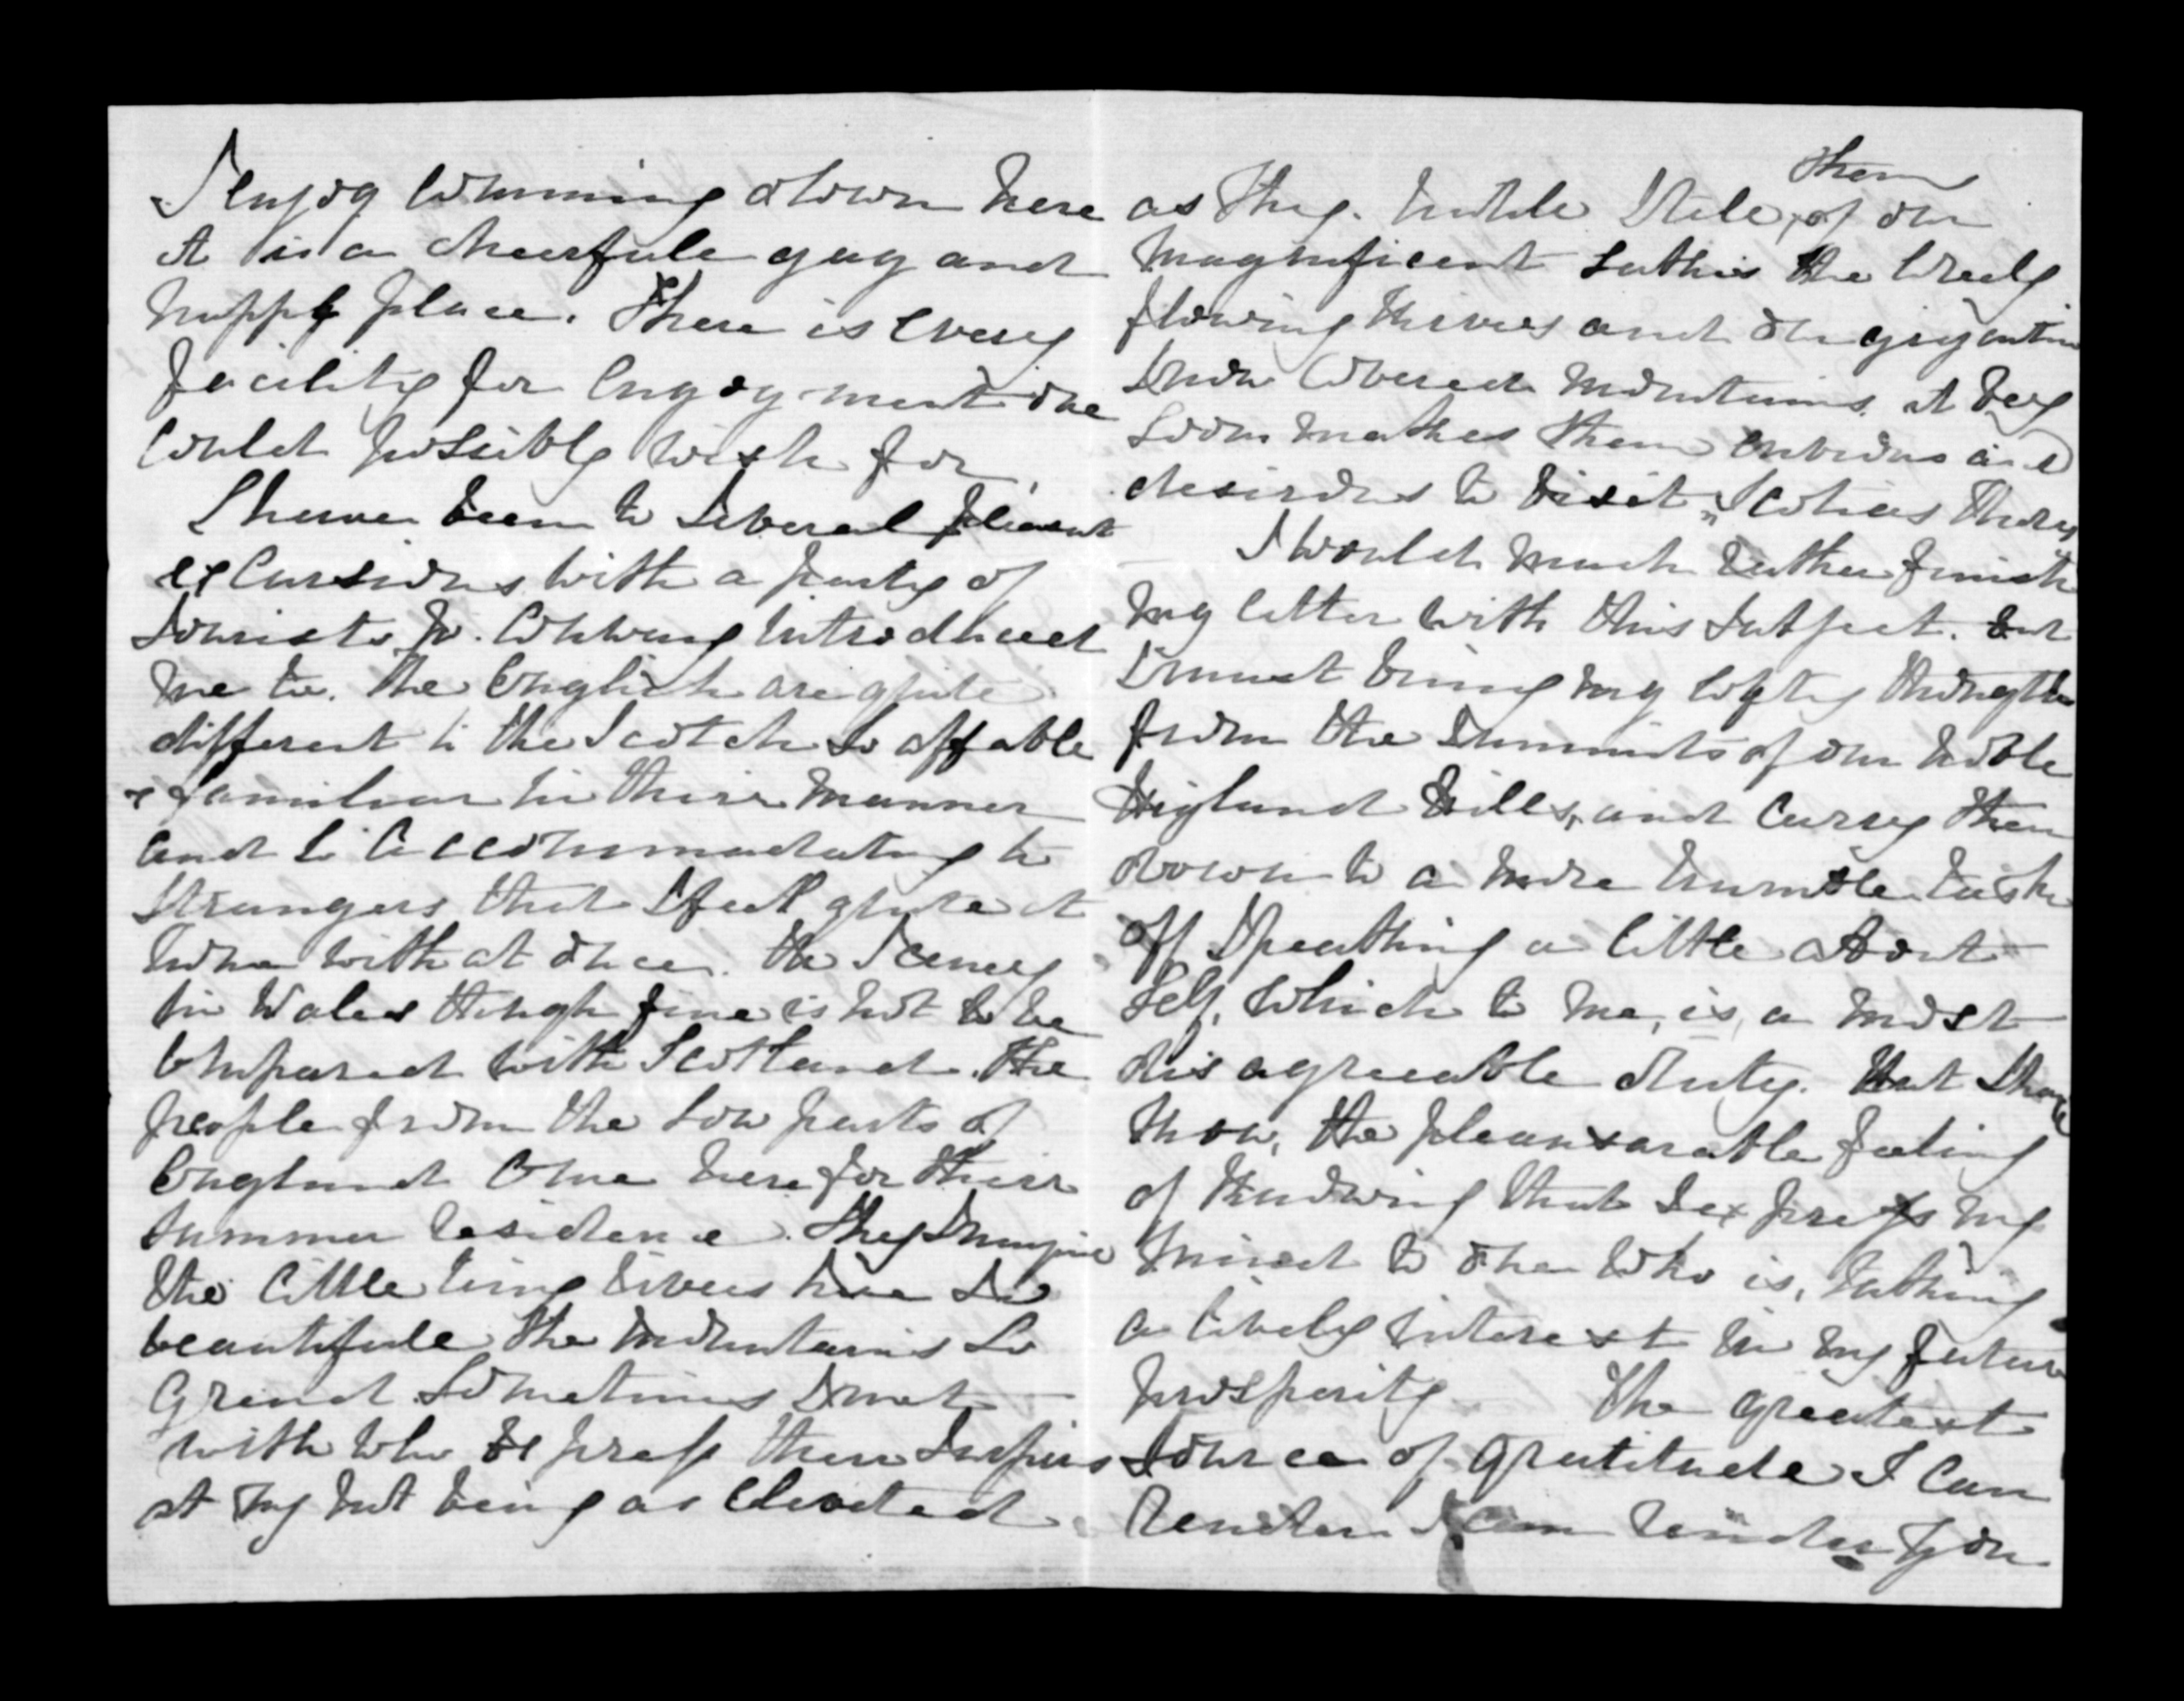 I enjoy comming down here
it is a cheerfule gay and
happy place. There is every
facility for enjoyment one
could possibly wish for,
I have been to several pleasent
excursions with a party of
tourists Jr. Conway introduced
me to. The English are quite
different to the Scotch so affable
& familiar in their manner
and so accommodating to
strangers that I feel quite at
home with at once. the scenery
in Wales though fine is not to be
compared with Scotland. The
people from the low parts of
England come here for their
summer residence. They Imagine
the little tiny rivers here so
beautifule the mountains so
Grand. Sometimes I met
with who express their surpris
at my not being as elevated
as they. while I tele them of our
magnificent Lathes the
flowing rivers and our gigantic
snow covered mountains. it very
soon makes them envious and
desirous to visit "Scotias Shores"
I would much rather finish
my letter with this subject. but
I must bring my lofty thoughts
from the summits of our noble
Higland hills, and carry them
down to a more humble task
off speaking a little about
self, which to me, is, a most
disagreeable duty. But I have
now, the pleansarable feeling
of knowing that I express my
mind to one who is, taking
a lively interest in my future
prosperity The greatest
source of gratitude I can
render I can render you